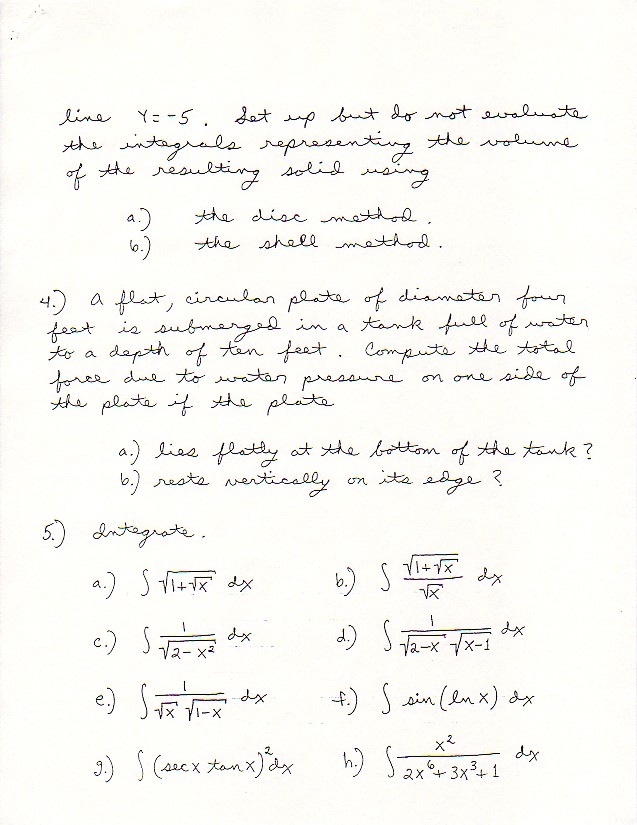 line Y = -5. Set up but do not evaluate
the integrals representing the volume
of the resulting solid using
a.) the disc method.
b.) the shell method.
4.) A flat, circular plate of diameter four
feet is submerged in a tank full of water
to a depth of ten feet. Compute the total
force due to water pressure on one side of
the plate if the plate
a.) lies flatly at the bottom of the tank?
b.) rests vertically on its edge?
5.) Integrate.
a.) ∫ √(1+√x) dx b.) ∫ √(1+√x)/√x dx
c.) ∫ 1/√(2-x²) dx d.) ∫ 1/(√(2-x) √(x-1)) dx
e.) ∫ 1/(√x √(1-x)) dx f.) ∫ sin(ln x) dx
g.) ∫ (sec x tan x)² dx h.) ∫ x²/(2x⁶+3x³+1) dx